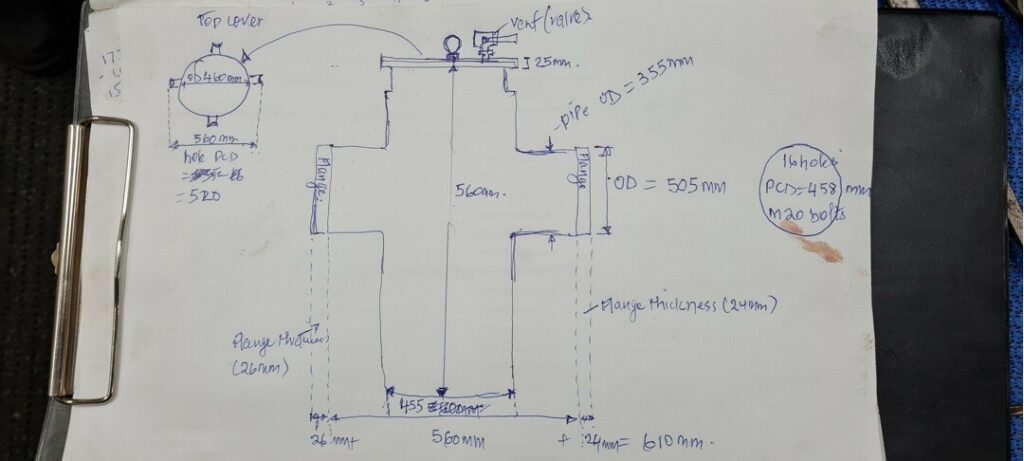 Top cover
vent (valve)
25mm.
OD 460mm
560mm
hole PCD
= 520
pipe OD = 355mm
Flange
Flange
560mm.
OD = 505mm
16 holes
PCD = 458 mm
M20 bolts
Flange thickness (24mm)
Flange thickness
(26mm)
455
26 mm + 560mm + 24mm = 610mm.